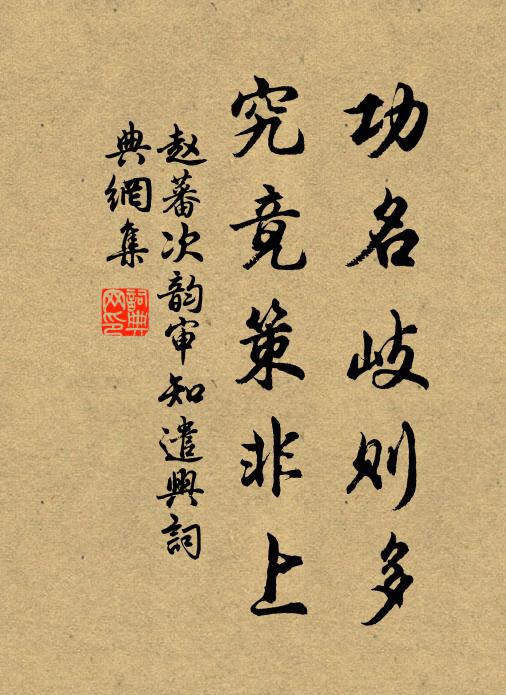 功名岐则多
究竟策非上
赵蕃次韵审知遣興詞
典網集
詞典
网印